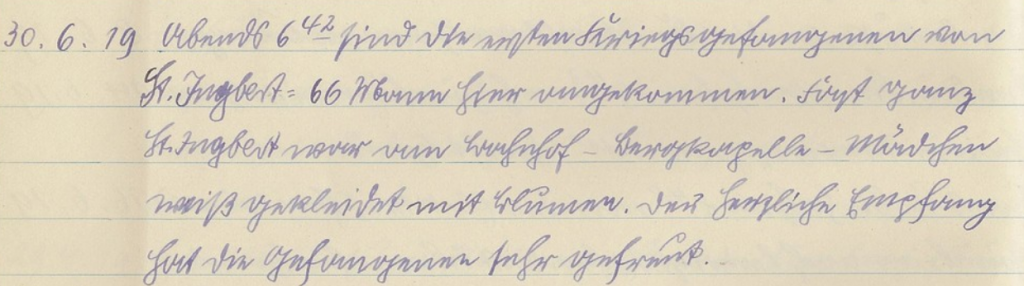 30. 6. 19 Abends 6 42 sind die ersten Kriegsgefangenen von
St. Ingbert = 66 Mann hier angekommen. Fast ganz
St. Ingbert war am Bahnhof – Bergkapelle – Mädchen
weiß gekleidet mit Blumen. Der herzliche Empfang
hat die Gefangenen sehr gefreut.